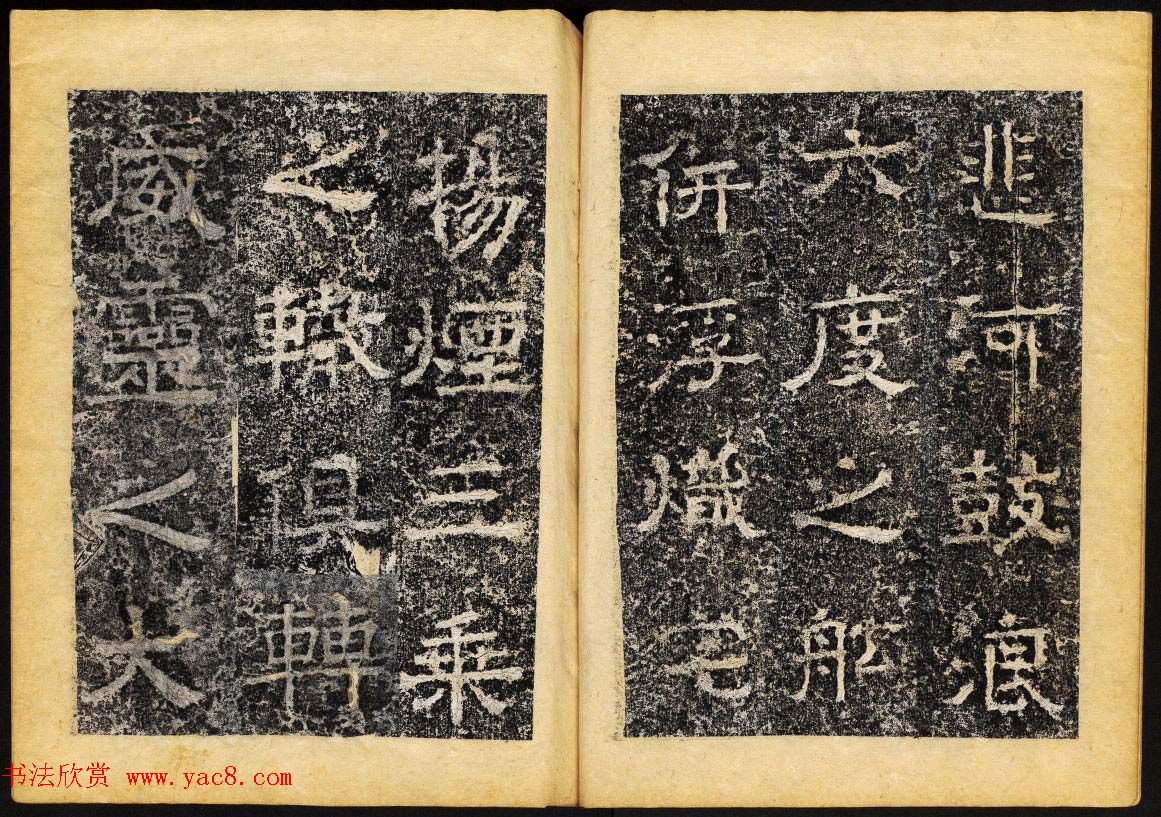 悲河鼓浪
六度之舩
併浮熾宅
揚煙三乘
之轙俱轉
威靈之大
书法欣赏 www.yac8.com